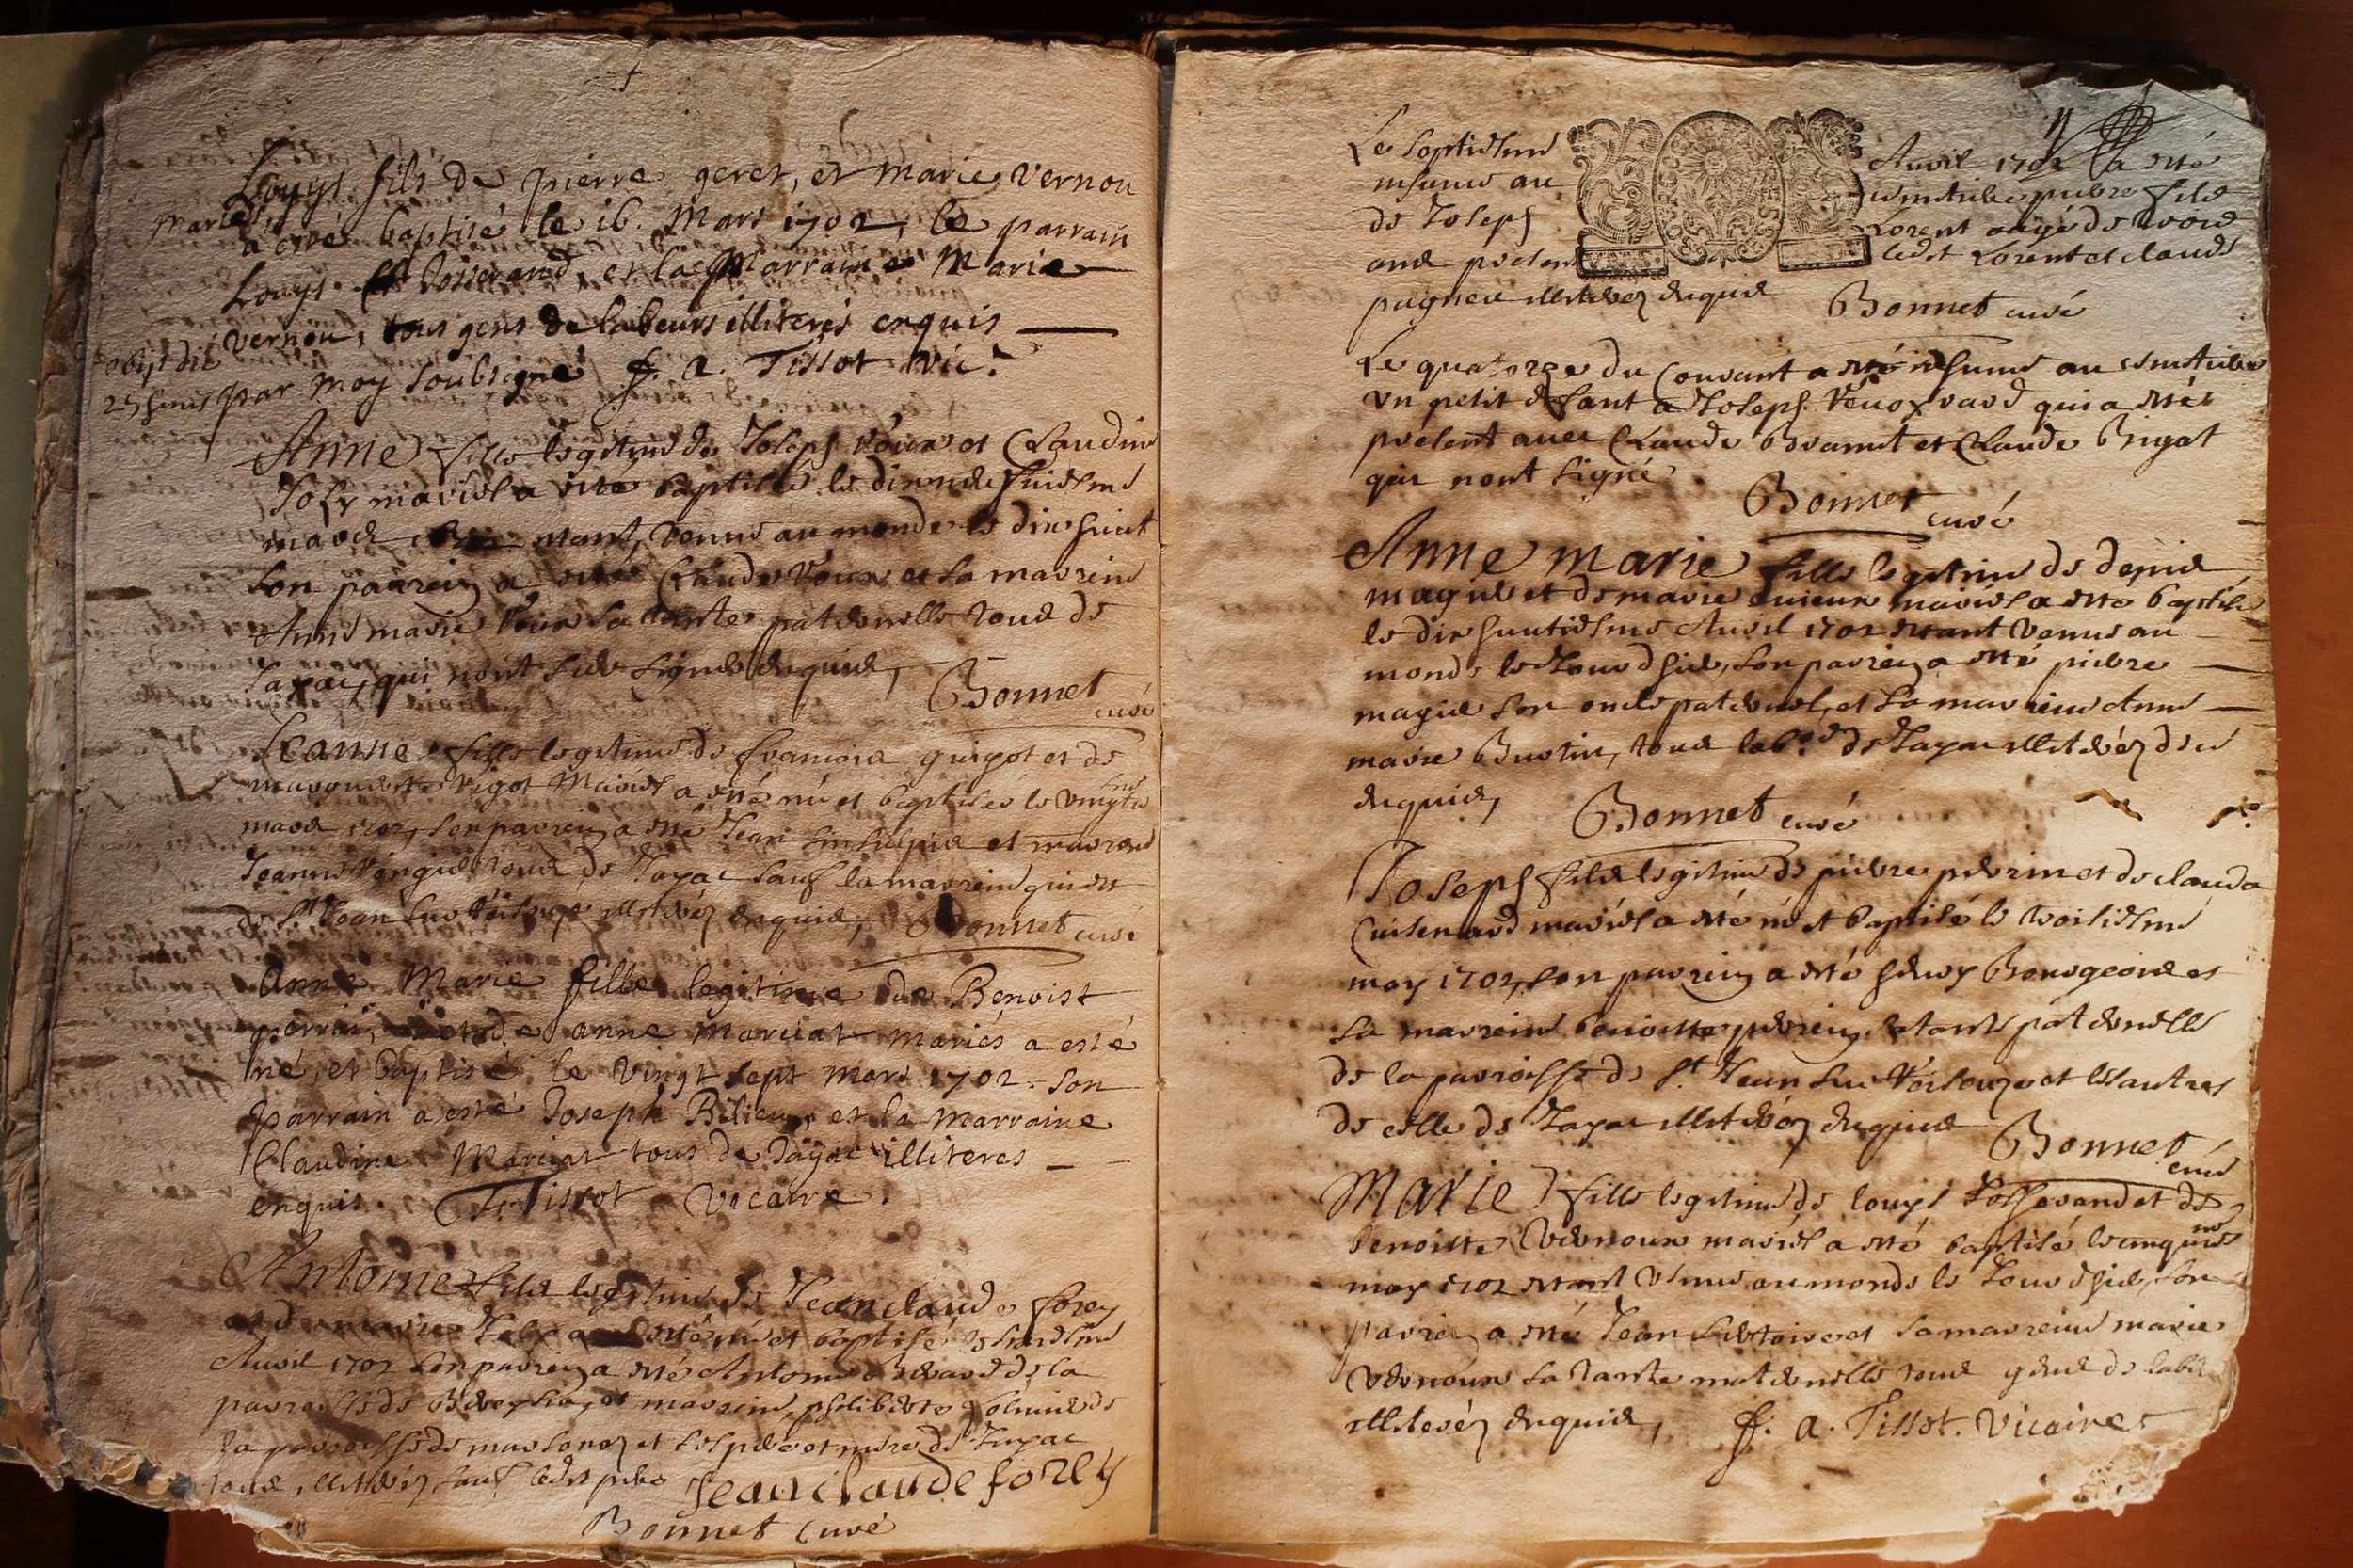 Louys fils de pierre geret, et marie vernou
mariés
a esté baptisé le 16. Mars 1702, le parrain
Louys Josserand, et la Marraine Marie
vernou, tous gens de labeurs illiterés enquis
obijt die
par moy soubsigné f. a. Tissot vic.
25
Anne fille legitime de Joseph et Claudine
Joly mariés a esté baptisée le dixneufuiesme
mars estant venue au monde le dix huit
son parrein a esté Claude et sa marreine
Anne marie sa tante paternelle tous de
Jayac, qui n'ont sceu signer enquis,
Bonnet curé
Jeanne fille legitime de francois guigot et de
marguerite Rigot Mariés a esté née et baptisée le vingtie
sme
mars 1702, son parrein a esté Jean et marreine
Jeanne tous de Jayac sauf la marreine qui est
de St Jean sur illiterés enquis, Bonnet curé
Anne Marie fille legitime de Benoist
perrin, et de anne Marciat mariés a esté
né, et baptisé le vingt sept mars 1702. son
parrain a esté Joseph Bilieux et la marraine
Claudine Marciat tous de Jayac illiteres
enquis. Tissot vicaire.
Antoine fils legitime de Jean claude forey
et de marie a esté né et baptisé le huictiesme
Auril 1702 son parrein a esté Antoine de la
parroisse de et marreine philiberte de
la parroisse de marsonas et les père et mère de Jayac
tous illiterés sauf ledit père Jean claude forey
Bonnet curé
Le septiesme Auril 1702 a esté
inhumé au cimetiere pierre fils
de Joseph Lorent aagé de trois
ans presens ledit Lorent et claude
illiterés enquis Bonnet curé
Le quatorze du Courant a esté inhumé au cimetiere
un petit enfant a Joseph qui a esté
présent auec Claude et Claude Bigot
qui nont signé Bonnet curé
Anne marie fille legitime de denis
magnie et de marie mariés a esté baptisée
le dix huictiesme Auril 1702 estant venue au
monde le Jour d'hier, son parrein a esté pierre
magnie son oncle paternel, et sa marreine Anne
marie tous labrs de Jayac illiterés
enquis, Bonnet curé
Joseph fils legitime de pierre perrin et de clauda
Cuisenard mariés a esté né et baptisé le troisiesme
may 1702, son parrein a esté Bourgeois et
sa marreine benoitte perrein sa tante paternelle
de la parroisse de St. Jean sur et les autres
de celle de Jayac illiterés enquis Bonnet
curé
Marie fille legitime de louys Josserand et de
benoitte vernoux mariés a esté baptisée le cinquies
me
may 1702 estant venue au monde le Jour d'hier, son
parrein a esté Jean et sa marreine marie
vernoux sa tante maternelle tous gens de labr
illiterés enquis, f. a. Tissot. vicaire